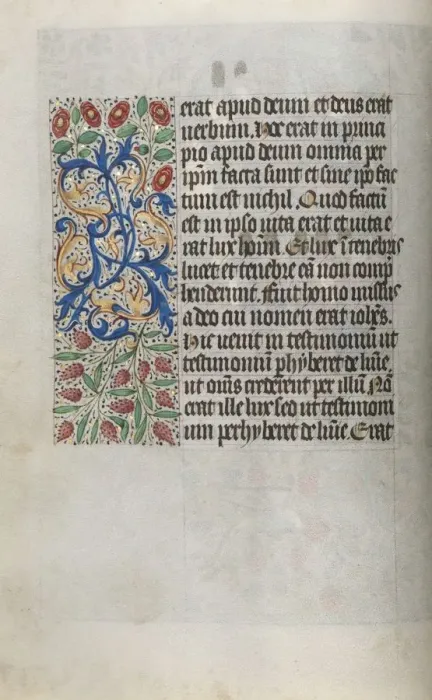 erat apud deum et deus erat
uerbum. Hoc erat in princi
pio apud deum omnia per
ip̄m facta sunt et sine ip̄o fac
tum est nichil. Quod factū
est in ipso uita erat et uita e
rat lux hoīm. Et lux ī tenebris
lucet et tenebre eā non comp
henderunt. Fuit homo missus
a deo cui nomen erat ioh̄es.
Hic uenit in testimoniū ut
testimoniū phyberet de lūīe.
ut oms̄ crederent per illū. Nō
erat ille lux sed ut testimoni
um perhyberet de lūīe. Erat